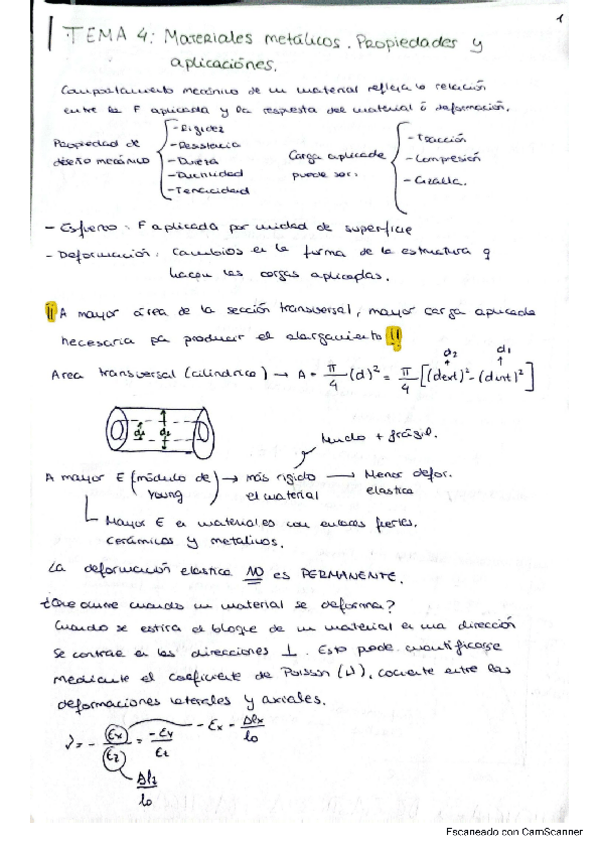 1
TEMA 4: Materiales metálicos. Propiedades y
aplicaciónes.
Comportamiento mecánico de un material refleja la relación
entre la F aplicada y la respuesta del material ó deformación.
Propiedad de diseño mecánico
- Rigidez
- Resistencia
- Dureza
- Ductilidad
- Tenacidad
Carga aplicada puede ser:
- Tracción
- Compresión
- Cizalla.
- Esfuerzo: F aplicada por unidad de superficie
- Deformación: cambios en la forma de la estructura q
hacen las cargas aplicadas.
¡¡ A mayor área de la sección transversal, mayor carga aplicada
necesaria pa producir el alargamiento !!
d2 d1
Area transversal (cilindrico) → A = π/4 (d)² = π/4 [(dext)² - (dint)²]
d1 d2
Nudo + frágil.
A mayor E (módulo de Young) → más rigido el material → Menor defor. elastica
Mayor E en materiales con enlaces fuertes.
cerámicos y metalicos.
La deformación elastica NO es PERMANENTE.
¿Que ocurre cuando un material se deforma?
Cuando se estira el bloque de un material en una dirección
se contrae en las direcciones ⊥. Esto puede cuantificarse
mediante el coeficiente de Poisson (ν), cociente entre las
deformaciones laterales y axiales.
ν = - εx/εz = -εy/εz
εx - Δlx/lo
Δlz/lo
Escaneado con CamScanner